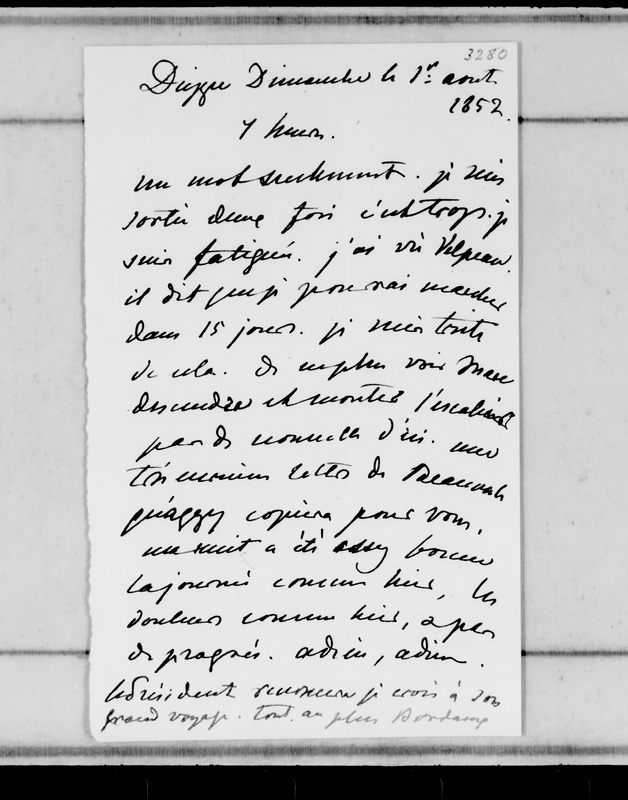 3280
Dieppe Dimanche le 1er aout
1852.
7 heures.
un mot seulement. je suis
sortie deux fois c'est trop. je
suis fatiguée. j'ai vu Velpeau.
il dit que je pourrai marcher
dans 15 jours. je suis triste
de cela. de ne plus voir
descendre et monter l'escalier
pas de nouvelle d'ici. une
très lettre de
qu'aggy copiera pour vous.
ma nuit a été assez bonne
la journée comme hier, les
douleurs comme hier, a pas
de progrés. adieu, adieu.
le Président renoncera je crois à son
grand voyage. tout au plus Bordeaux